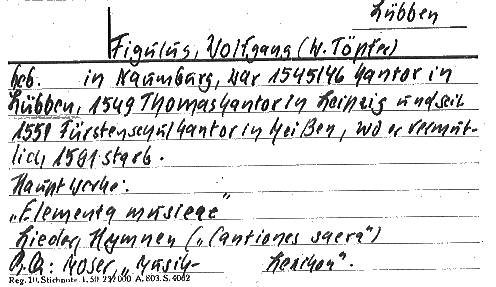 Lübben
Figulus, Wolfgang (W. Töpfer)
Geb. in Naumburg, war 1545/46 Kantor in
Lübben, 1549 Thomaskantor in Leipzig und seit
1551 Fürstenschulkantor in Meißen, wo er vermut-
lich 1591 starb.
Hauptwerke:
„Elementa musicae"
Lieder, Hymnen („Cantiones sacra")
Moser, „Musik- Lexikon".
Reg. 10. Stichnote. I. 50 232000 A. 803. S. 4002